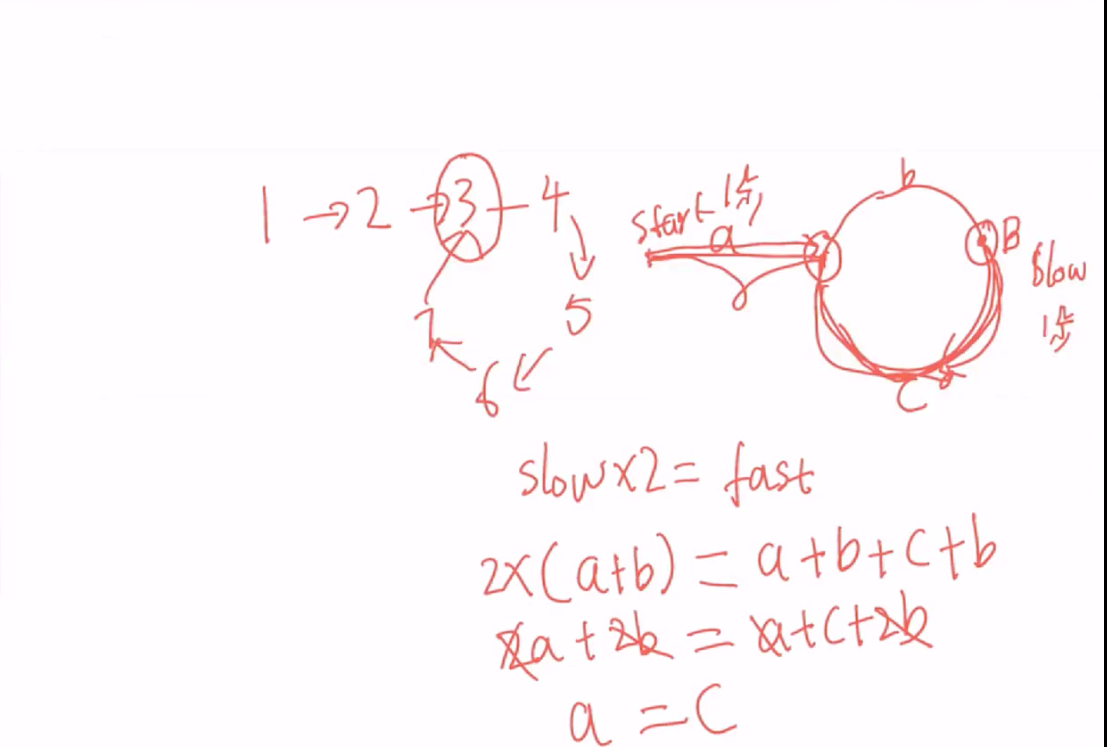 1 → 2 → 3 - 4
5
6
7
start 1步
a
b
B
slow
1步
C
slow x 2 = fast
2x(a+b) = a+b+c+b
2a + 2b = a+c+2b
a = c